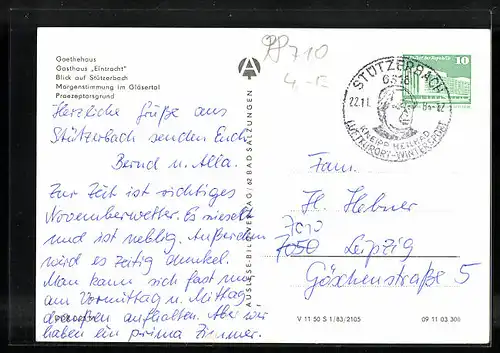 Goethehaus
Gasthaus „Eintracht"
Blick auf Stützerbach
Morgenstimmung im Gläsertal
Praezeptorsgrund
Herzliche Grüße aus
Stützerbach senden Euch
Bernd u. Alla.
Zur Zeit ist richtiges
Novemberwetter. Es nieselt
und ist neblig. Außerdem
wird es zeitig dunkel.
Man kann sich fast nur
am Vormittag u. Mittag
draußen aufhalten. Aber wir
haben ein prima Zimmer.
AUSLESE-BILD-VERLAG / 62 BAD SALZUNGEN
A
710
4,-
10
STÜTZERBACH
6316
22.11.
KNEIPP HEILBAD
LUFTKURORT - WINTERSPORT
Fam.
H. Hebner
7010
7050 Leipzig
Göschenstraße 5
V 11 50 S 1/83/2105
09 11 03 306